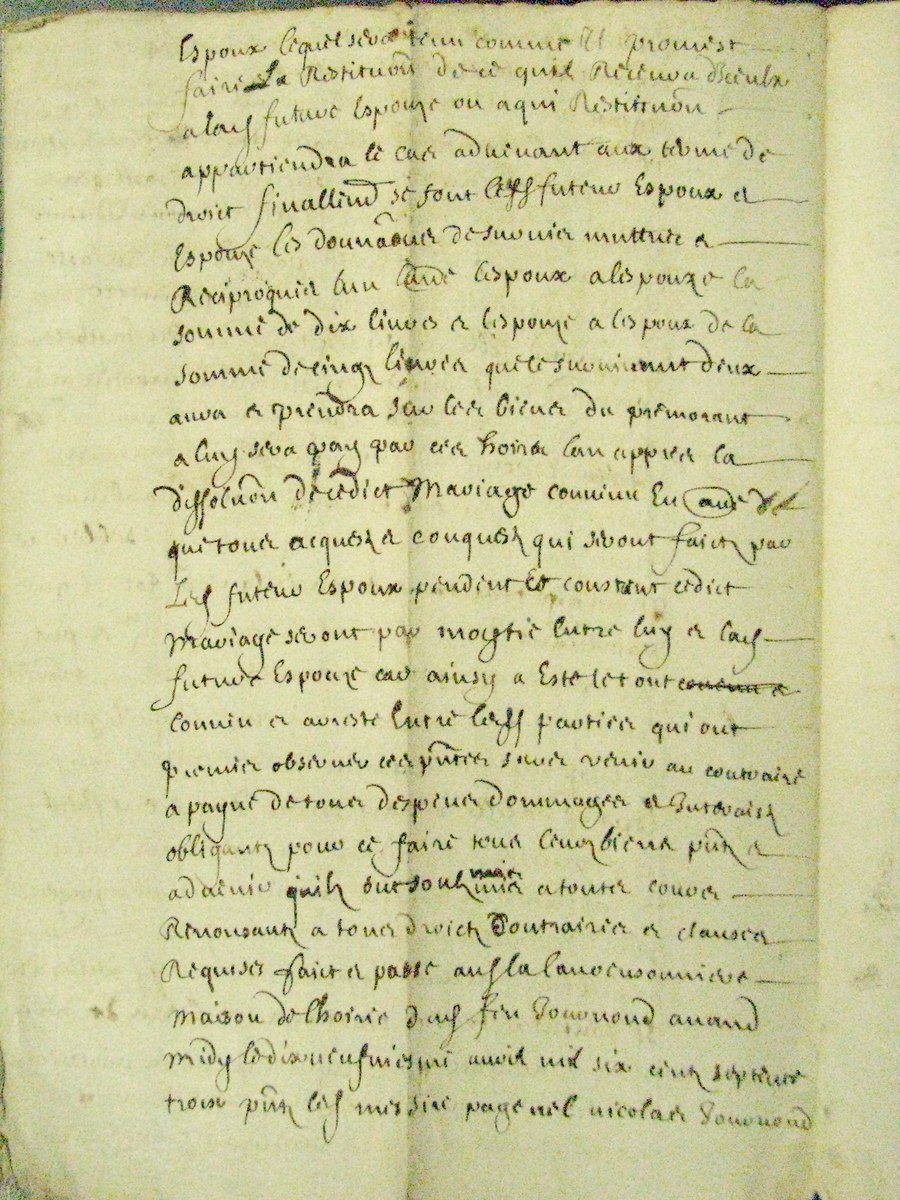 Espoux lequel sera tenu comme Il promest
faire La Restitu͠on de ce quil Recevra d'Icelux
a lad future Espouze ou a qui Restitu͠on
appartiendra le cas advenant aux terme de
droict finallem̃ se sont lesd futeur Espoux et
Espouze les donna de survies muttuee et
Reciproques lun lespoux a lespouze la
somme de dix livres et lespouze a lespoux de la
somme de cinq livres que le survivant deux
aura et prendra sur les biens du premorant
a luy sera paÿ par ces hoirs lan appres la
dissolu͠on de cedict Mariage convenu En
que tous acquest et conquest qui seront faictz par
Lesd futeur Espoux pendent Et constent cedict
Mariage seront par moytie Entre luy et lad
future Espouze car ainsy a Este le tout
Convin et areste Entre lesd parties qui ont
premier observer ces pñtes sans venir au contraire
a payne de tous despens dommages et Interaistz
obligantz pour ce faire tous leurs biens pñtz et
advenir quilz ont soubz mis a toutes cours
Renonsantz a tous droictz Contraires et clauses
Requises faict et passe aud la
maison de lhoirie dud feu avand
midy le dix neufviesme avril mil six centz septente
trois pñtz lesd messire pagenel nicolas